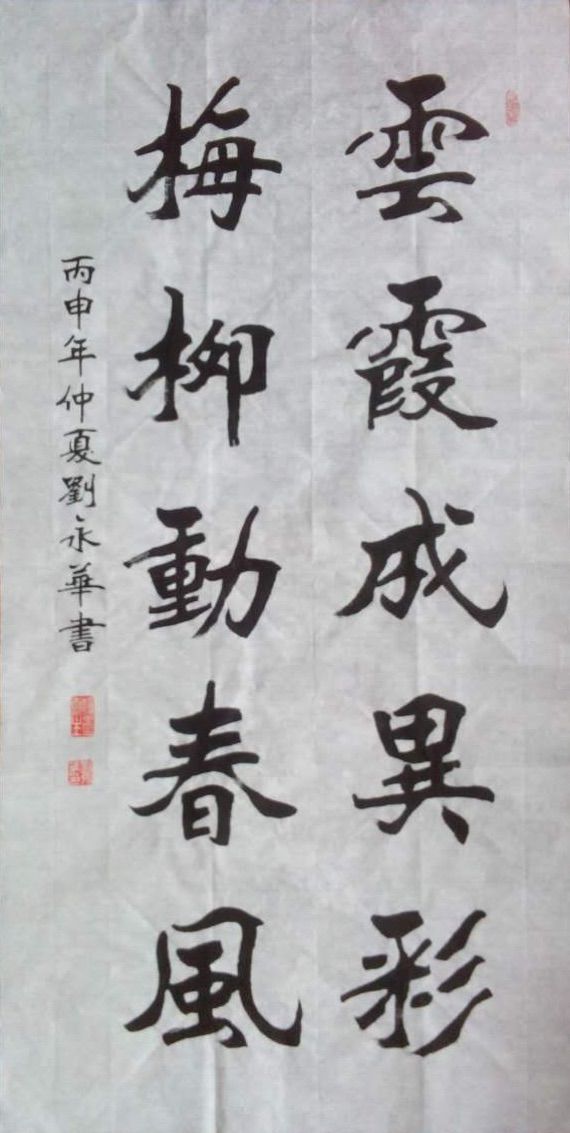 雲霞成異彩
梅柳動春風
丙申年仲夏劉永華書